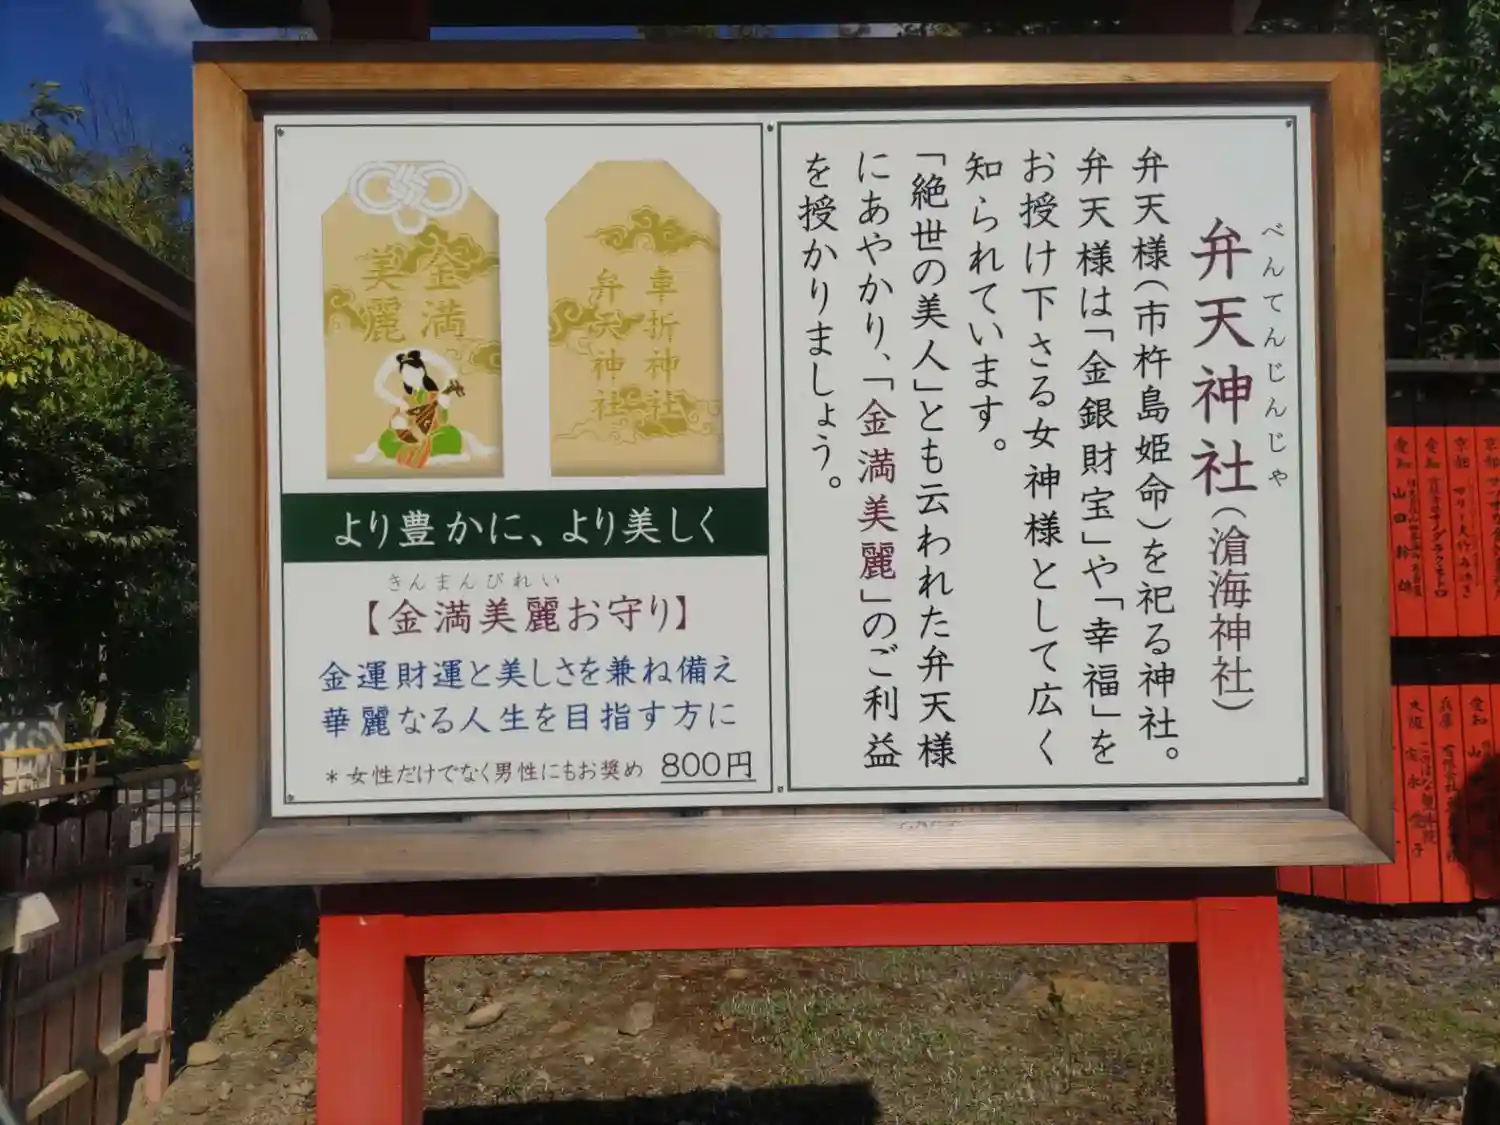 べんてんじんじゃ
弁天神社(滄海神社)
弁天様(市杵島姫命)を祀る神社。
弁天様は「金銀財宝」や「幸福」を
お授け下さる女神様として広く
知られています。
「絶世の美人」とも云われた弁天様
にあやかり、「金満美麗」のご利益
を授かりましょう。
金満
美麗
車折神社
弁天神社
より豊かに、より美しく
きんまんびれい
【金満美麗お守り】
金運財運と美しさを兼ね備え
華麗なる人生を目指す方に
*女性だけでなく男性にもお奨め 800円
愛知
愛知
京都
京都
山口
大阪
兵庫
愛知